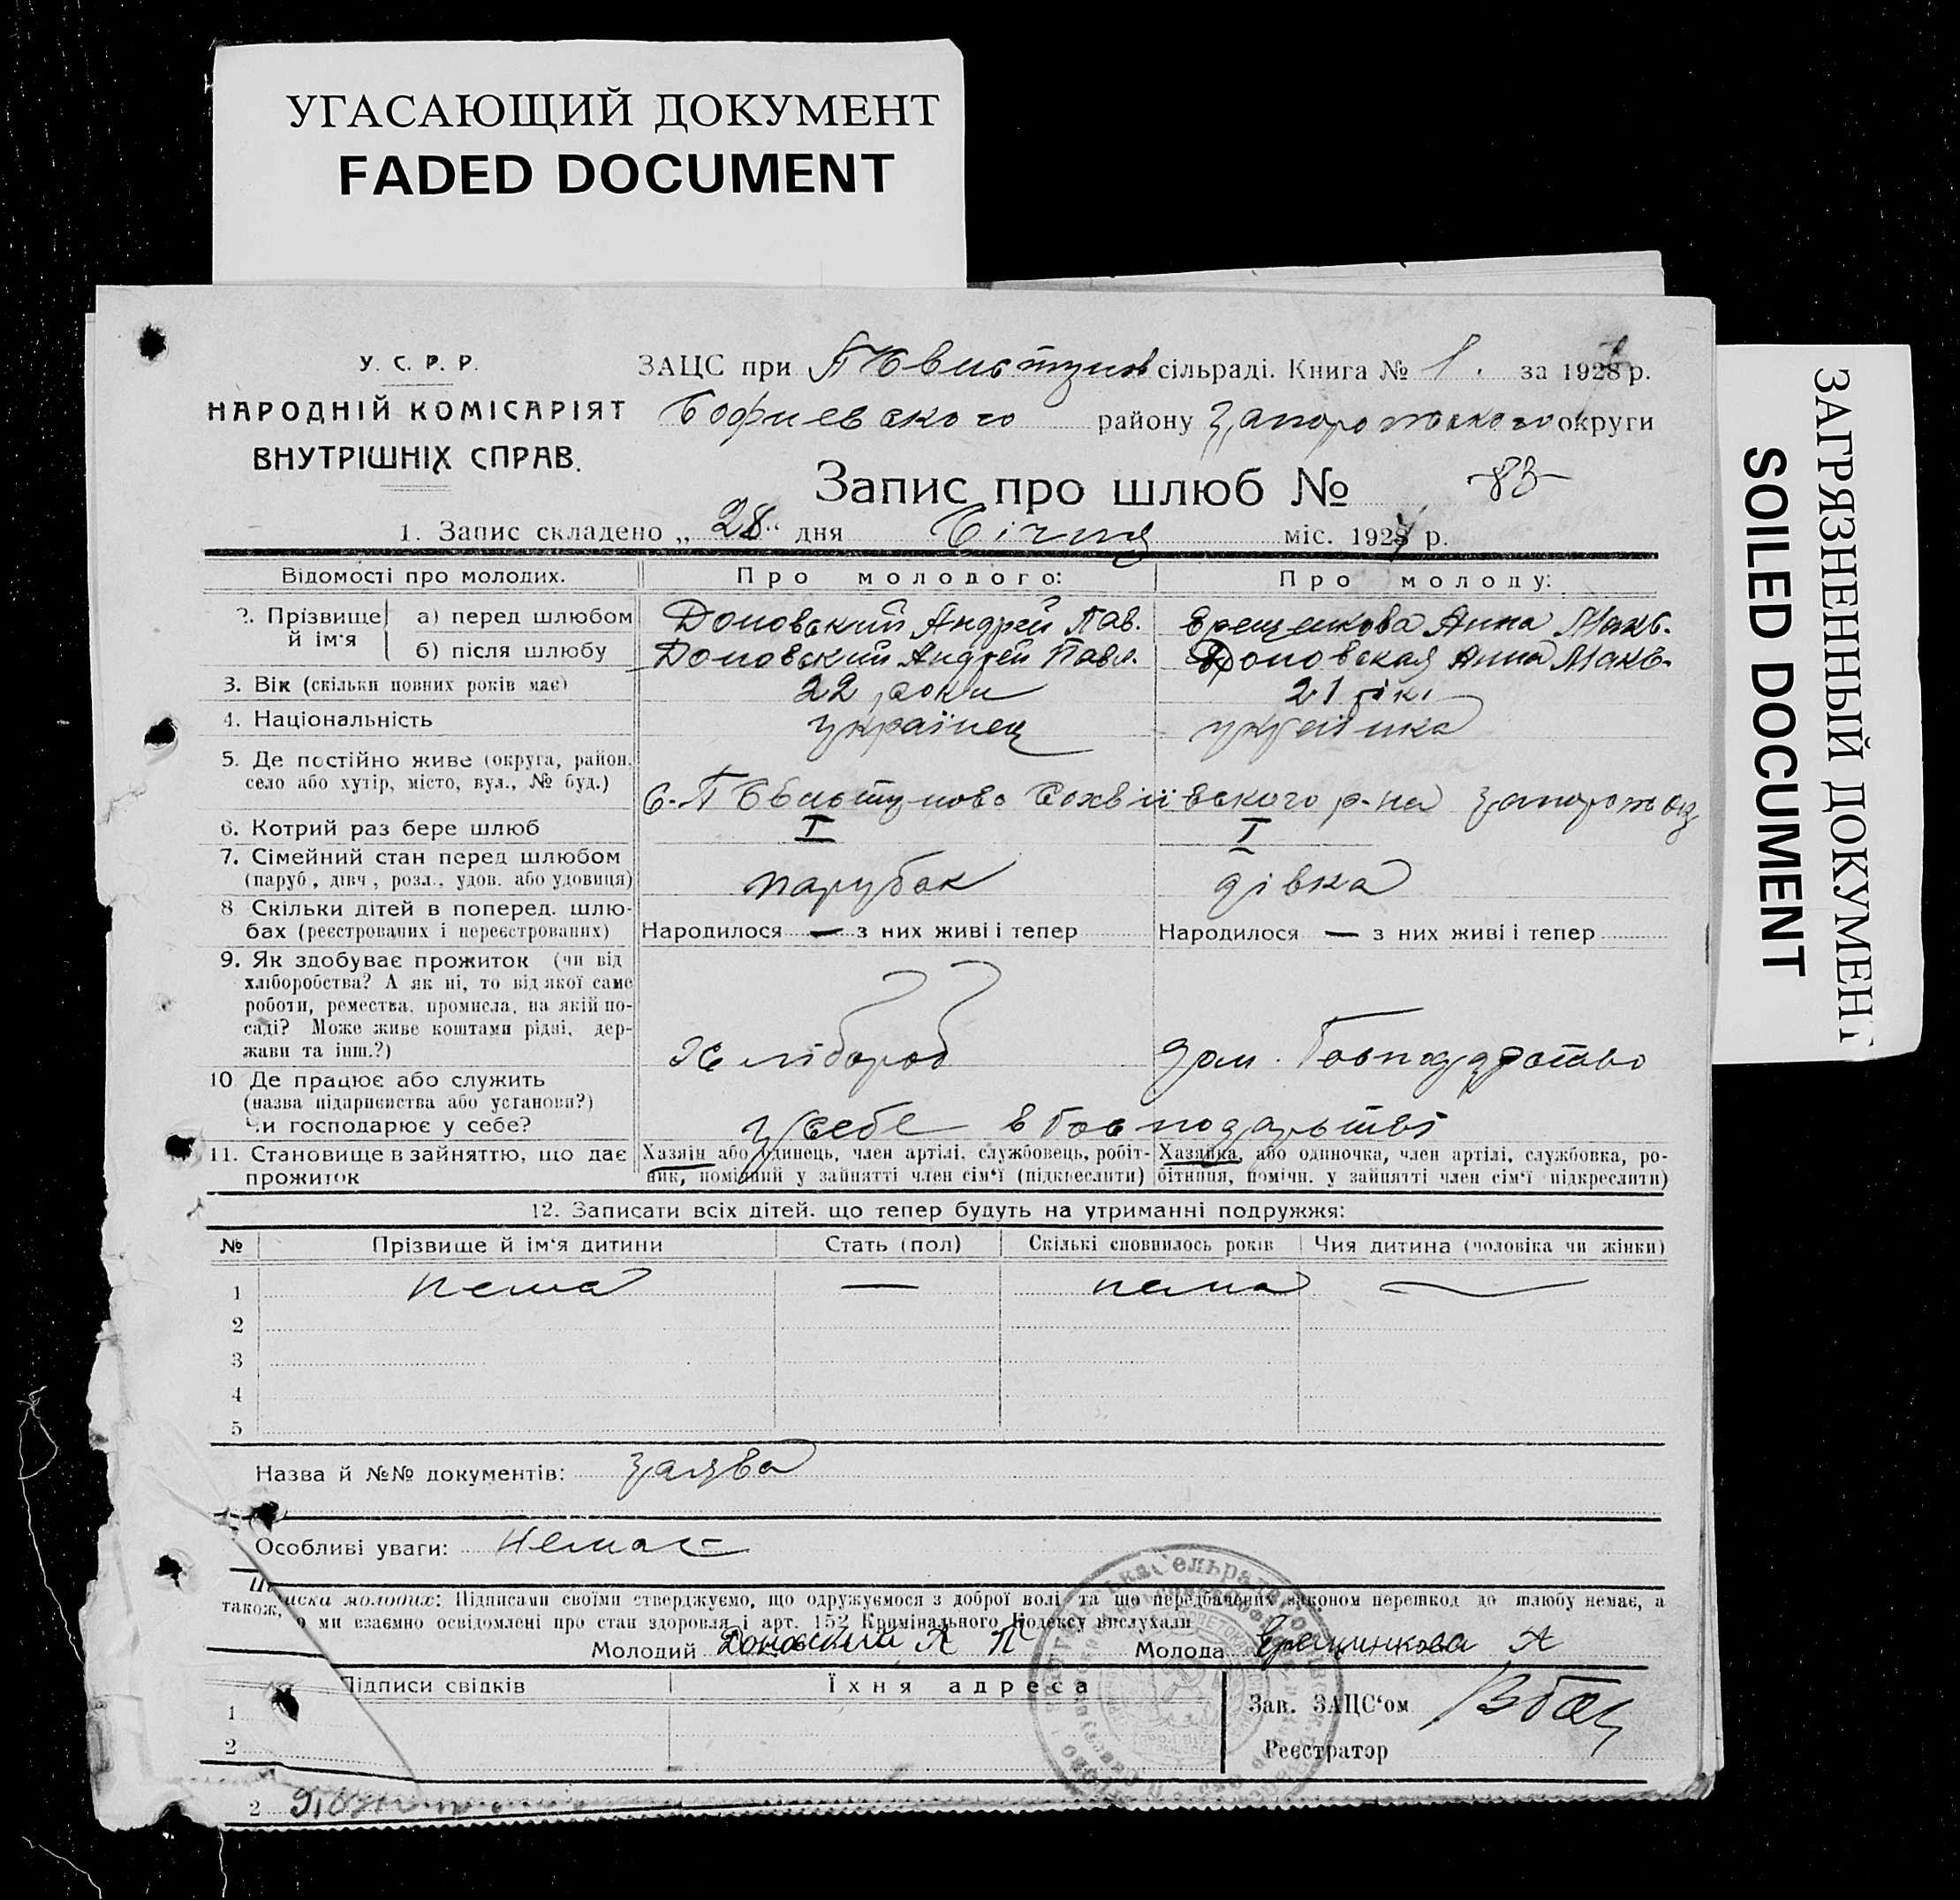 УГАСАЮЩИЙ ДОКУМЕНТ
FADED DOCUMENT
ЗАГРЯЗНЕННЫЙ ДОКУМЕНТ
SOILED DOCUMENT
У. С. Р. Р.
НАРОДНІЙ КОМІСАРІЯТ
ВНУТРІШНІХ СПРАВ.
ЗАЦС при сільраді. Книга № 1. за 192 р.
Софиевского району Запорожского округи
Запис про шлюб № 83
1. Запис складено „28“ дня Січня міс. 192 р.
Відомості про молодих. Про молодого: Про молоду:
2. Прізвище й ім'я
а) перед шлюбом Доновский Андрей Пав. Ерещенкова Анна Макс.
б) після шлюбу Доновский Андрей Павл. Доновская Анна Макс.
3. Вік (скільки повних років має) 22 роки 21 рік.
4. Національність українец українка
5. Де постійно живе (округа, район,
село або хутір, місто, вул., № буд.)
6. Котрий раз бере шлюб I I
7. Сімейний стан перед шлюбом
(паруб., дівч., розл., удов. або удовиця) парубок дівка
8 Скільки дітей в поперед. шлю-
бах (реєстрованих і нереєстрованих) Народилося — з них живі і тепер Народилося — з них живі і тепер
9. Як здобуває прожиток (чи від
хліборобства? А як ні, то від якої саме
роботи, ремества, промисла, на якій по-
саді? Може живе коштами рідні, дер-
жави та інш.?) Хлібороб дом. Господарство
10 Де працює або служить
(назва підприємства або установи?)
Чи господарює у себе? у себе в господарстві
11. Становище в зайняттю, що дає
прожиток
Хазяін або одинець, член артілі, службовець, робіт-
ник, помічний у зайнятті член сім'ї (підкреслити)
Хазяйка, або одиночка, член артілі, службовка, ро-
бітниця, помічн. у зайнятті член сім'ї підкреслити)
12. Записати всіх дітей. що тепер будуть на утриманні подружжя:
№ Прізвище й ім'я дитини Стать (пол) Скількі сповнилось років Чия дитина (чоловіка чи жінки)
1 нема — нема —
2
3
4
5
Назва й №№ документів: заява
Особливі уваги: немає
иска молодих: Підписами своїми стверджуємо, що одружуємося з доброї волі, та що передбачених законом перешкод до шлюбу немає, а
також, о ми взаємно освідомлені про стан здоровля і арт. 152 Кримінального Кодексу вислухали
Молодий Доновский А П Молода Ерещинкова А
Підписи свідків Їхня адреса
1
2
Зав. ЗАЦС'ом
Реєстратор
2